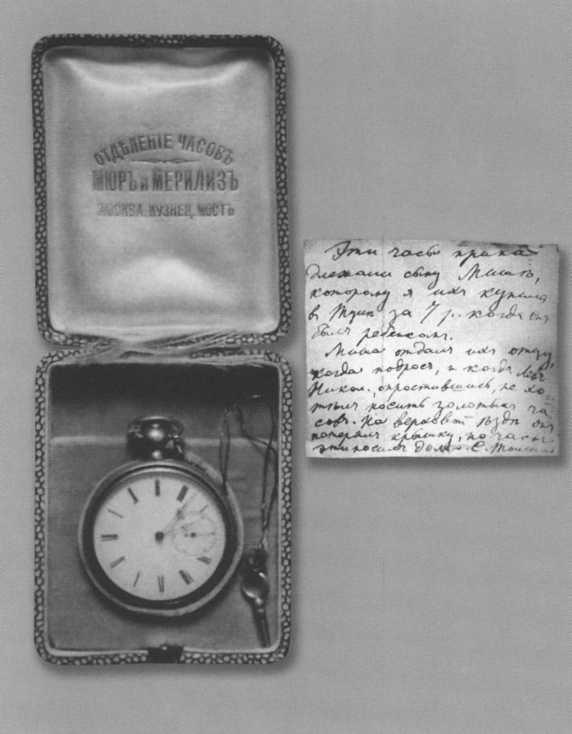 ОТДѢЛЕНІЕ ЧАСОВЪ
МЮРЪ и МЕРИЛИЗЪ
МОСКВА, КУЗНЕЦ. МОСТЪ
Эти часы принад
лежали сыну Мишѣ,
которому я ихъ купила
в Туле за 7 р. когда онъ
былъ ребенкомъ.
Миша отдалъ ихъ отцу,
когда подросъ, и когда Левъ
Никол. опростившись, не хо
тѣлъ носить золотыхъ ча
совъ. На верховой ѣздѣ онъ
потерялъ крышку, но часы
эти носилъ долго. С. Толстая